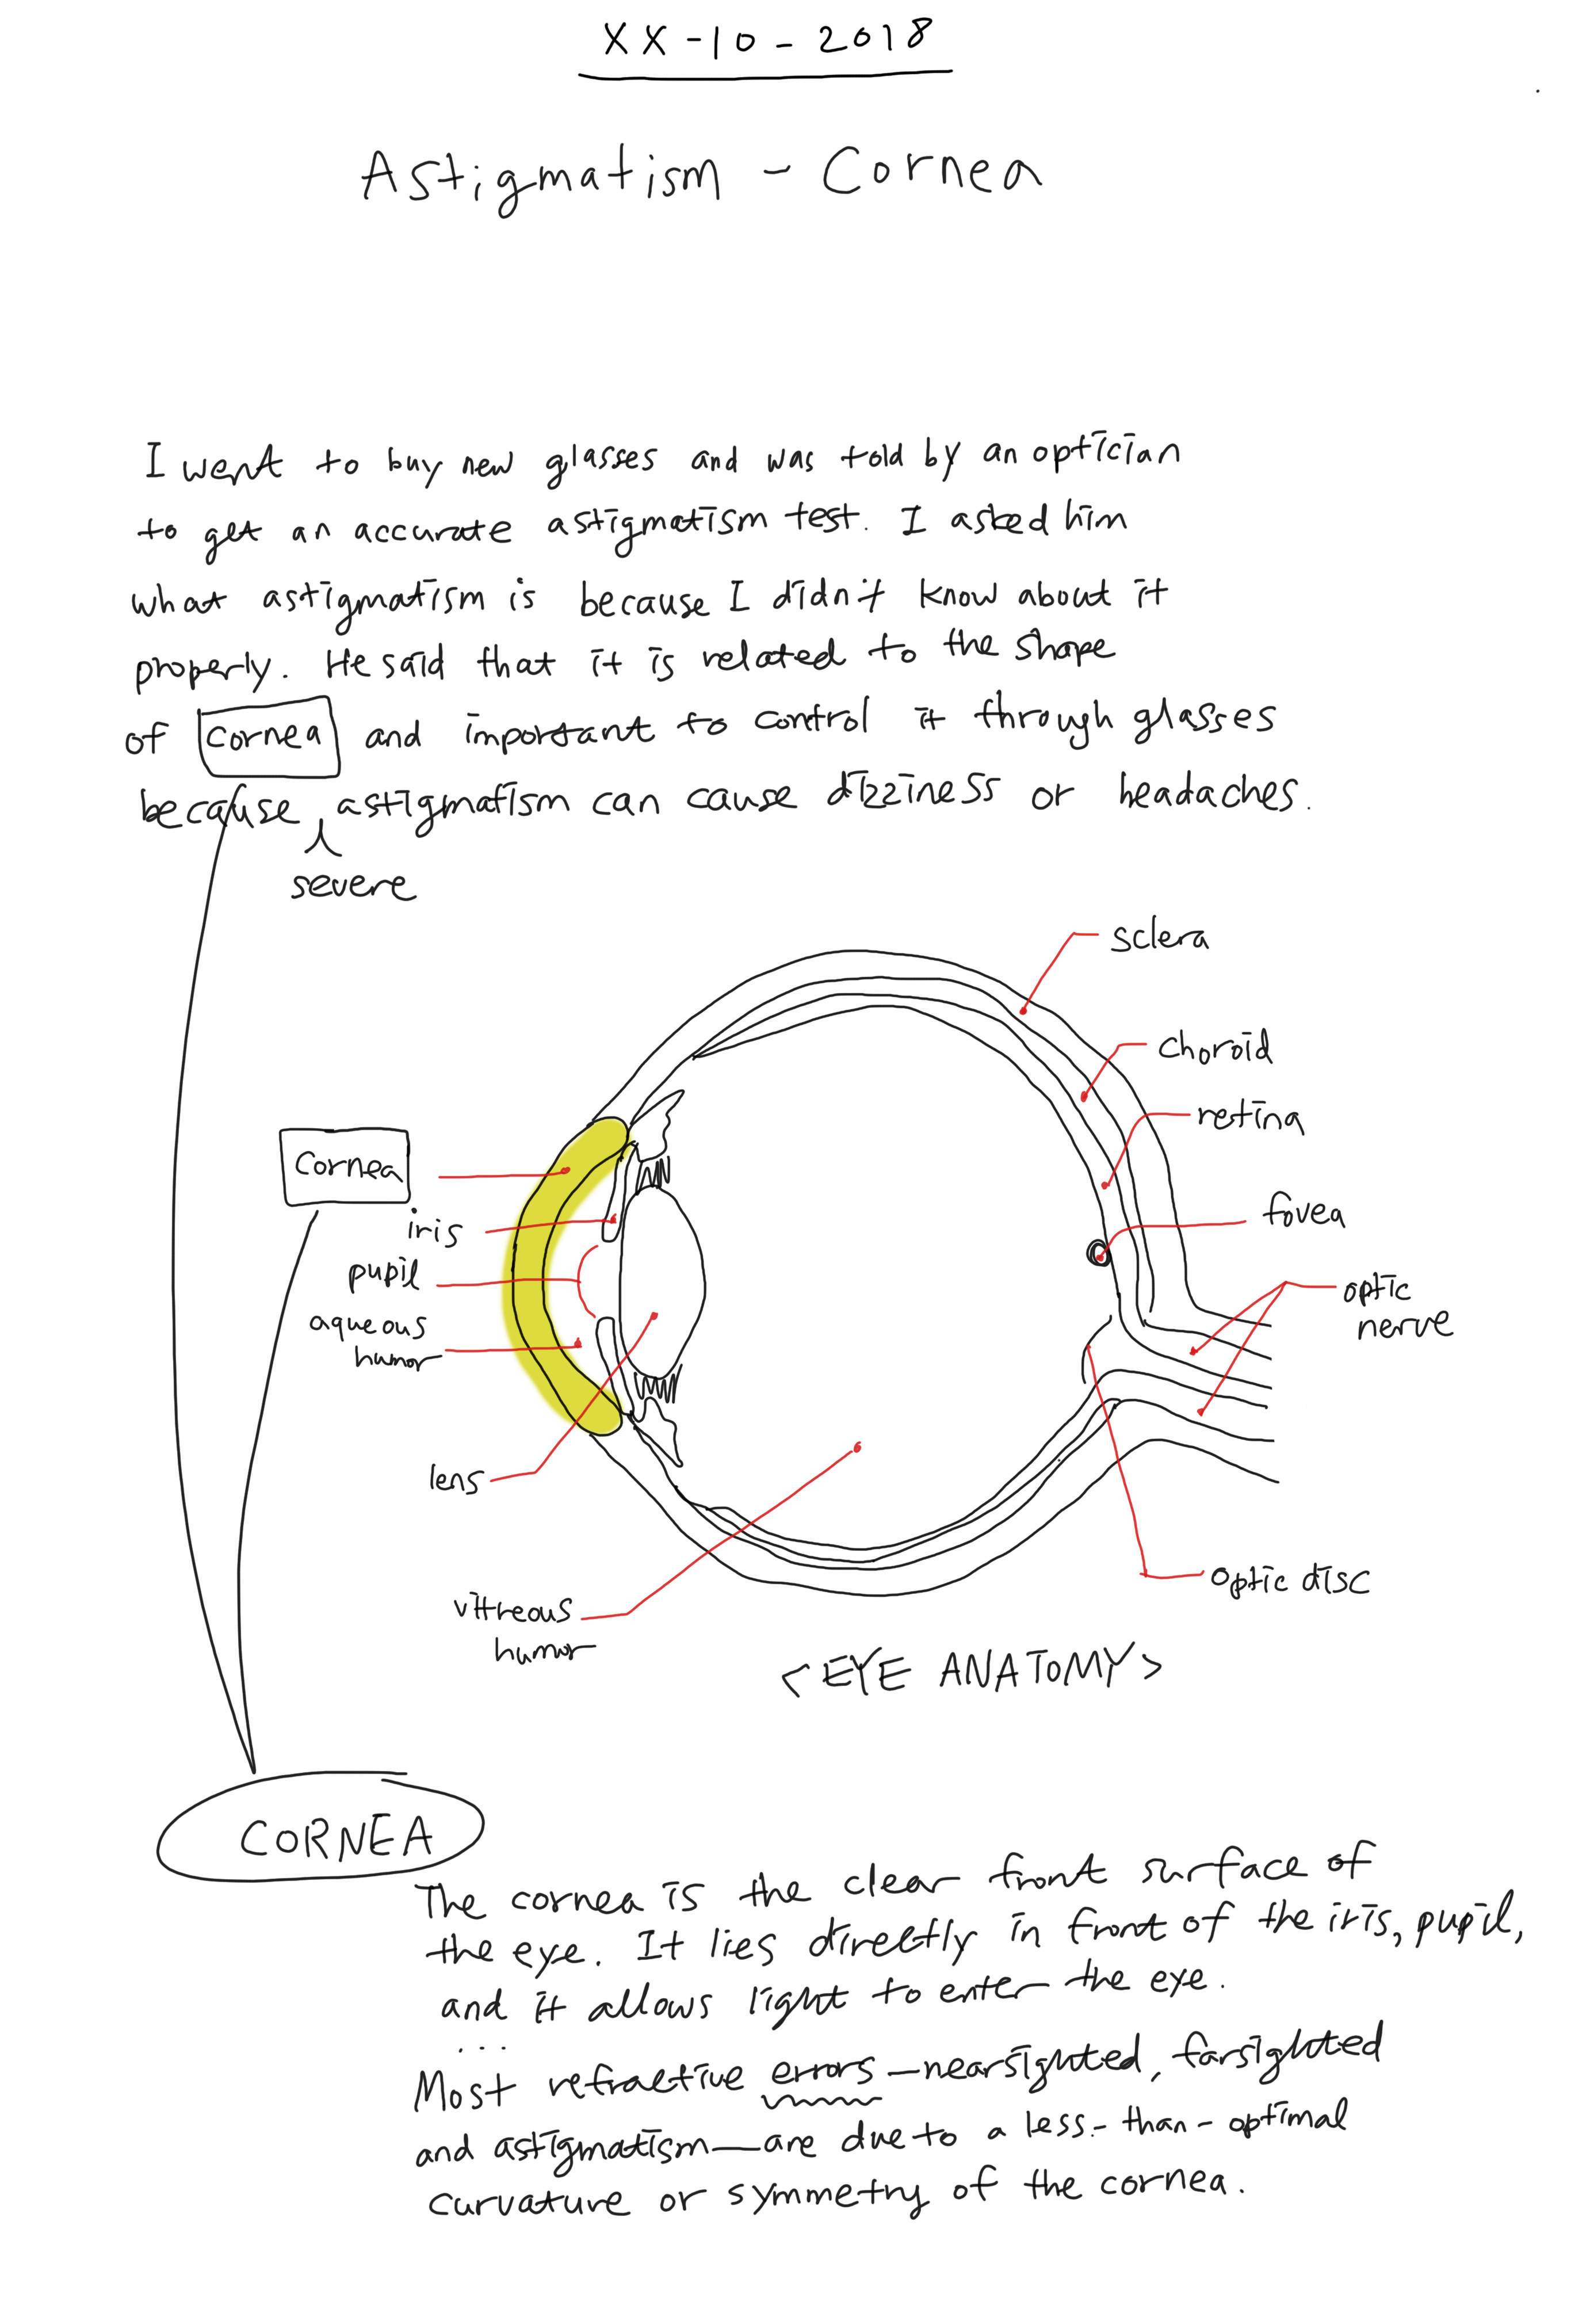 XX-10-2018
Astigmatism - Cornea
I went to buy new glasses and was told by an optician
to get an accurate astigmatism test. I asked him
what astigmatism is because I didn't know about it
properly. He said that it is related to the shape
of cornea and important to control it through glasses
because astigmatism can cause dizziness or headaches.
severe
sclera
choroid
retina
fovea
optic
nerve
optic disc
Cornea
iris
pupil
aqueous
humor
lens
vitreous
humor
<EYE ANATOMY>
CORNEA
The cornea is the clear front surface of
the eye. It lies directly in front of the iris, pupil,
and it allows light to enter the eye.
...
Most refractive errors—nearsighted, farsighted
and astigmatism—are due to a less-than-optimal
curvature or symmetry of the cornea.